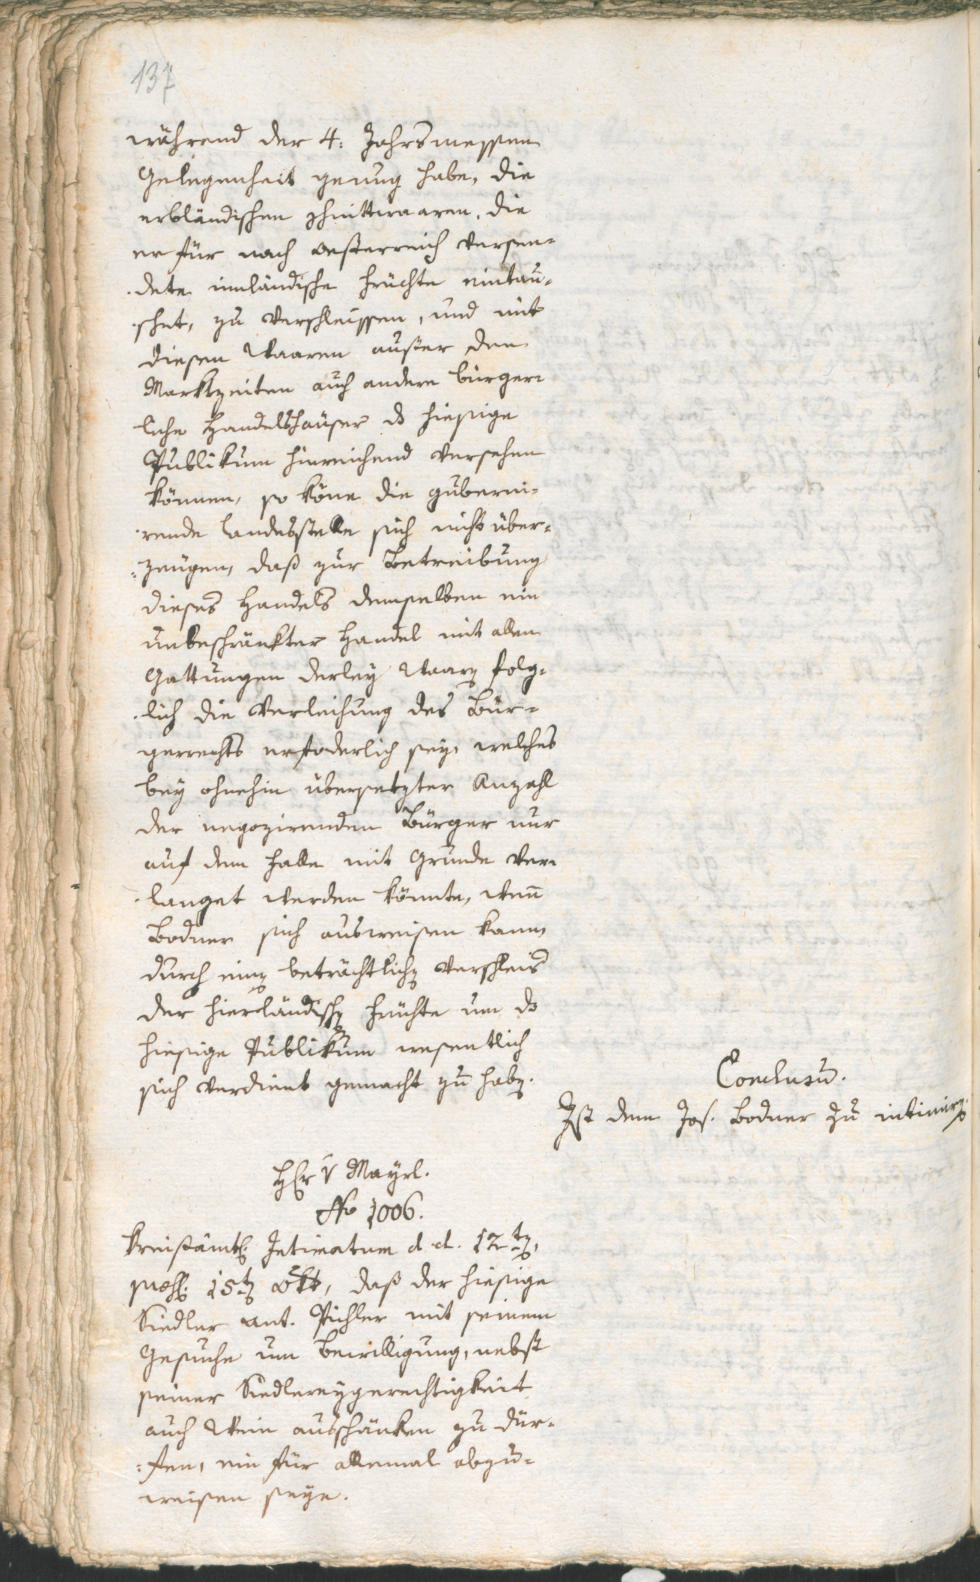 137
während der 4: Jahrsmessen
Gelegenheit genug habe, die
erbländischen schnittwaaren, die
er für nach oesterreich versen-
dete innländische früchte eintau-
schet, zu verschleissen, und mit
diesen Waaren außer den
Marktzeiten auch andere bürger-
liche Handelshäuser ds hiesige
Publikum hinreichend versehen
können, so köne die guberni-
rende landesstelle sich nicht über-
zeugen, daß zur Betreibung
dieses Handels demselben ein
unbeschränkter Handel mit allen
Gattungen derley Waaren folg-
lich die Verleihung des Bür-
gerrechts erfoderlich sey, welches
bey ohnehin übersetzter Anzahl
der negozirenden Bürger nur
auf dem falle mit Grunde ver-
langet werden könnte, wenn
Bodner sich ausweisen kann,
durch einen beträchtlichen Verschleis
der hierländischen früchte um ds
hiesige Publikum wesentlich
sich verdient gemacht zu haben.
Conclusū.
Ist dem Jos. Bodner zu intimiren.
HEr v Mayrl.
No 1006.
Kreißämtl. Intimatum d. d. 12ten,
præs. 15ten okt, daß der hiesige
Siedler Ant. Pichler mit seinem
Gesuche um Bewilligung, nebst
seiner Siedlereygerechtigkeit
auch Wein ausschänken zu dür-
fen, ein für allemal abzu-
weisen seye.